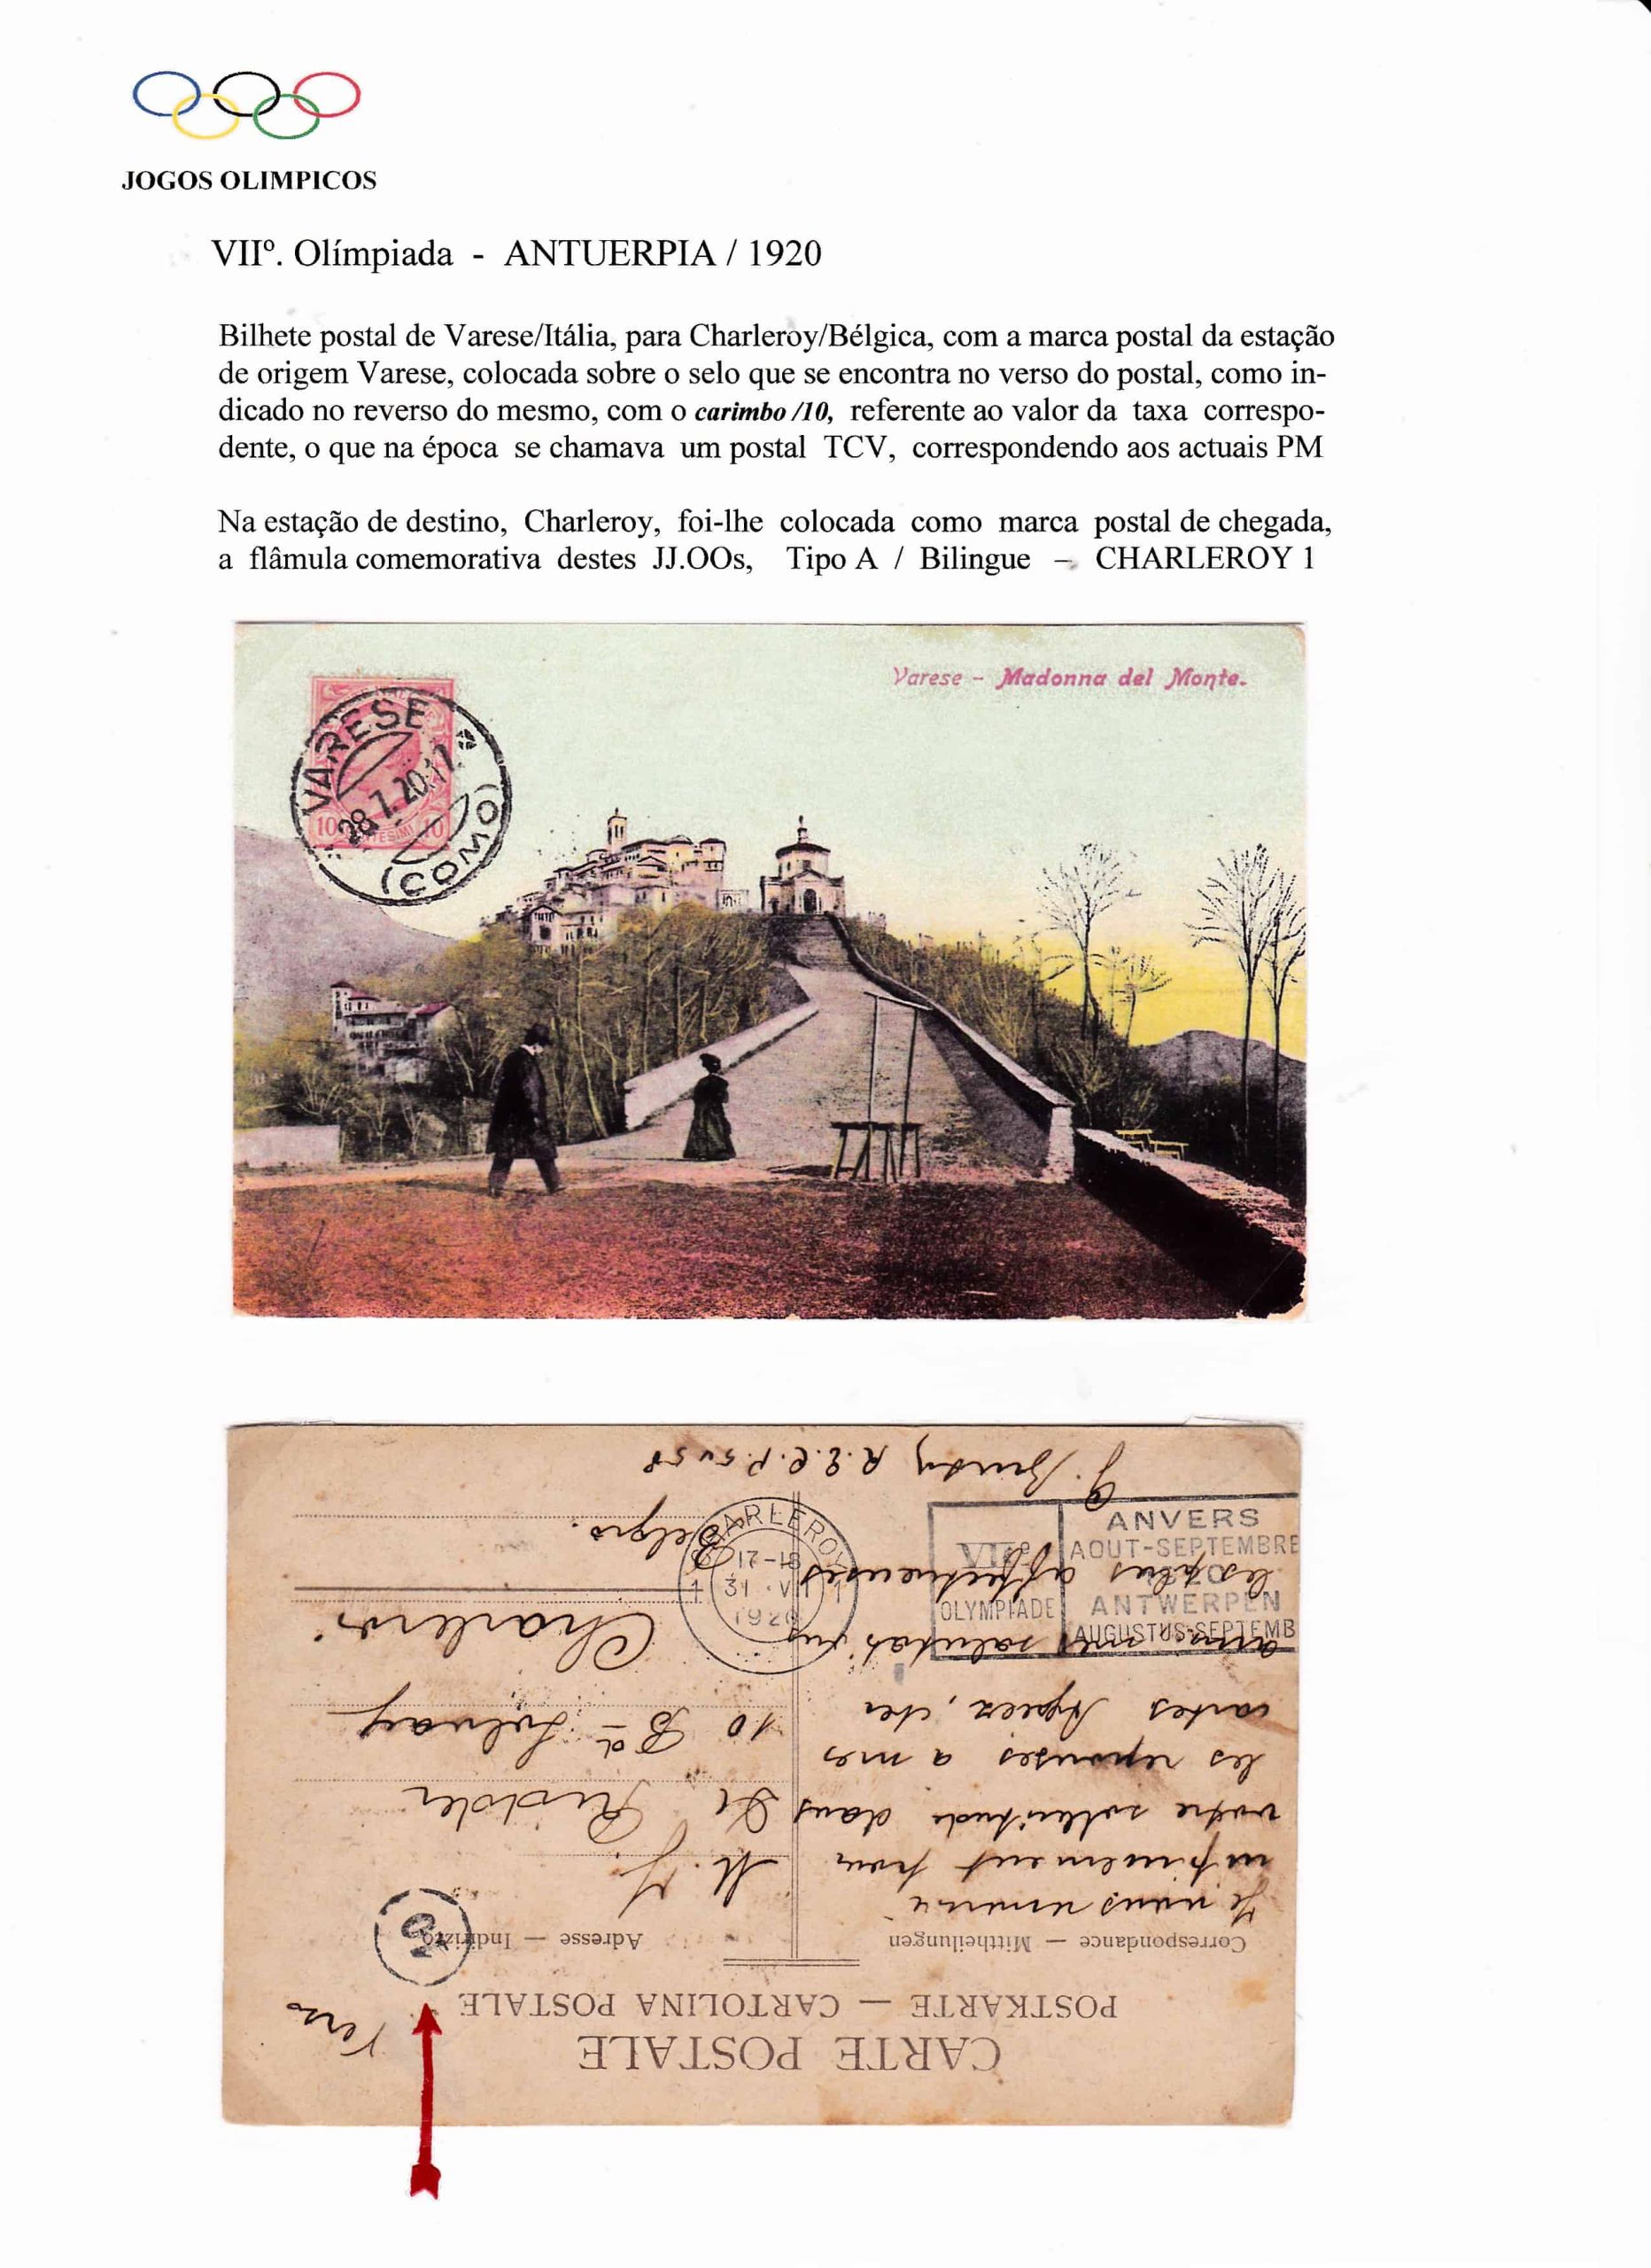 JOGOS OLIMPICOS
VIIº. Olímpiada - ANTUERPIA / 1920
Bilhete postal de Varese/Itália, para Charleroy/Bélgica, com a marca postal da estação
de origem Varese, colocada sobre o selo que se encontra no verso do postal, como in-
dicado no reverso do mesmo, com o carimbo /10, referente ao valor da taxa correspo-
dente, o que na época se chamava um postal TCV, correspondendo aos actuais PM
Na estação de destino, Charleroy, foi-lhe colocada como marca postal de chegada,
a flâmula comemorativa destes JJ.OOs, Tipo A / Bilingue – CHARLEROY 1
Varese - Madonna del Monte.
VARESE
28.7.20.17
(COMO)
10 CENTESIMI 10
CHARLEROY
1 17-18 1
31 VII
1920
VIIe
OLYMPIADE
ANVERS
AOUT-SEPTEMBRE
1920
ANTWERPEN
AUGUSTUS-SEPTEMB
CARTE POSTALE
POSTKARTE — CARTOLINA POSTALE
Correspondance — Mittheilungen
Adresse — Indirizzo
Je vous remercie
infiniment pour
votre solicitude dans
les reponses a mes
cartes
les plus affectueuses
M. J.
De Ridder
10 Bd Solvay
Charleroi
Belgio.